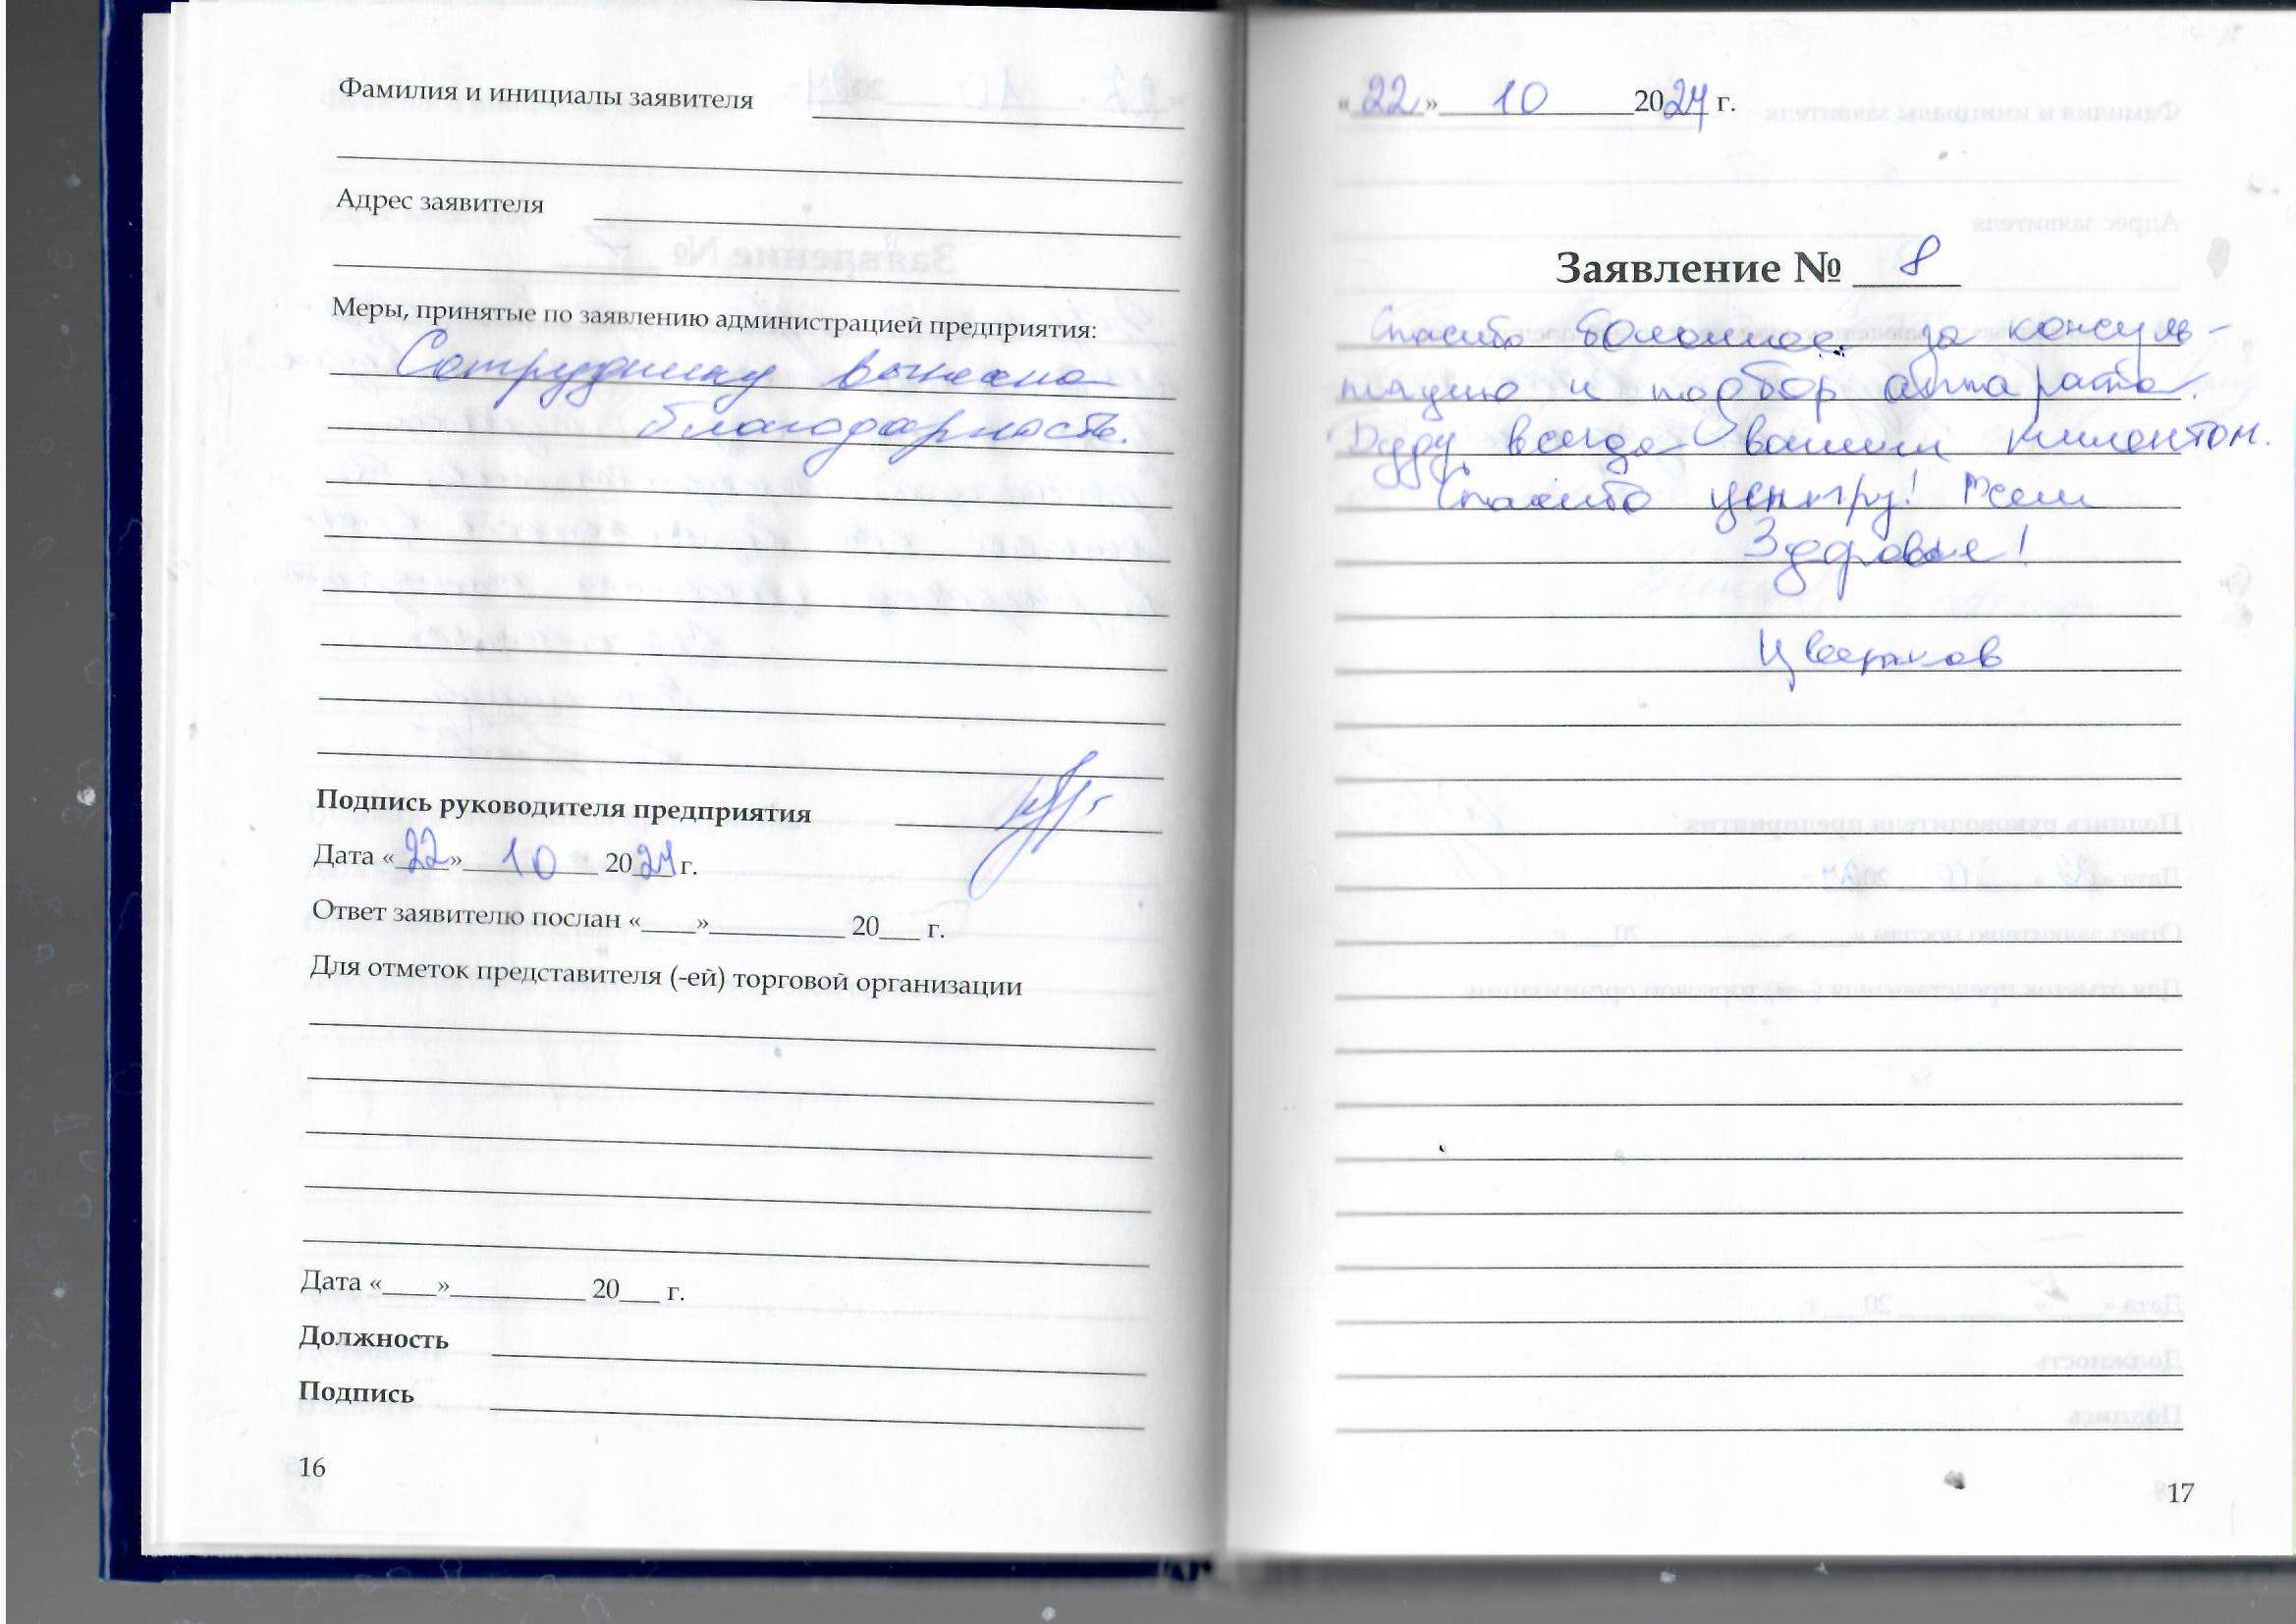 Фамилия и инициалы заявителя
Адрес заявителя
Меры, принятые по заявлению администрацией предприятия:
Сотруднику вынесена
благодарность.
Подпись руководителя предприятия
Дата «22» 10 2024 г.
Ответ заявителю послан «____»__________ 20___ г.
Для отметок представителя (-ей) торговой организации
Дата «____»__________ 20___ г.
Должность
Подпись
16
«22» 10 2024 г.
Заявление № 8
Спасибо большое за консуль-
тацию и подбор аппарата.
Буду всегда вашим клиентом.
Спасибо центру! Всем
Здоровье!
Цветков
17